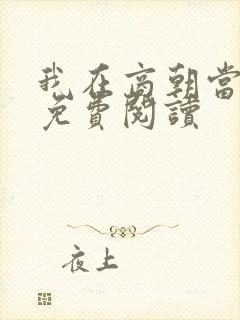 我在商朝當
免費閱讀
夜上